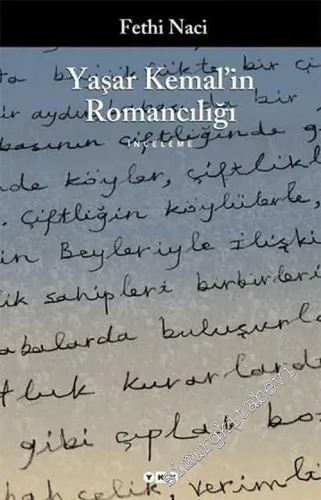 Fethi Naci
Yaşar Kemal'in
Romancılığı
İNCELEME
bir
çiftliğinde
nde köyler, çiftlikl
Çiftliğin köylülerle,
in Beyleriyle ilişki
lik sahipleri birbirleri
abalarda buluşurla
tluk kurarlardı
gibi çıplak boz
YKY
bah çelik, verimli
simurgkitabevi